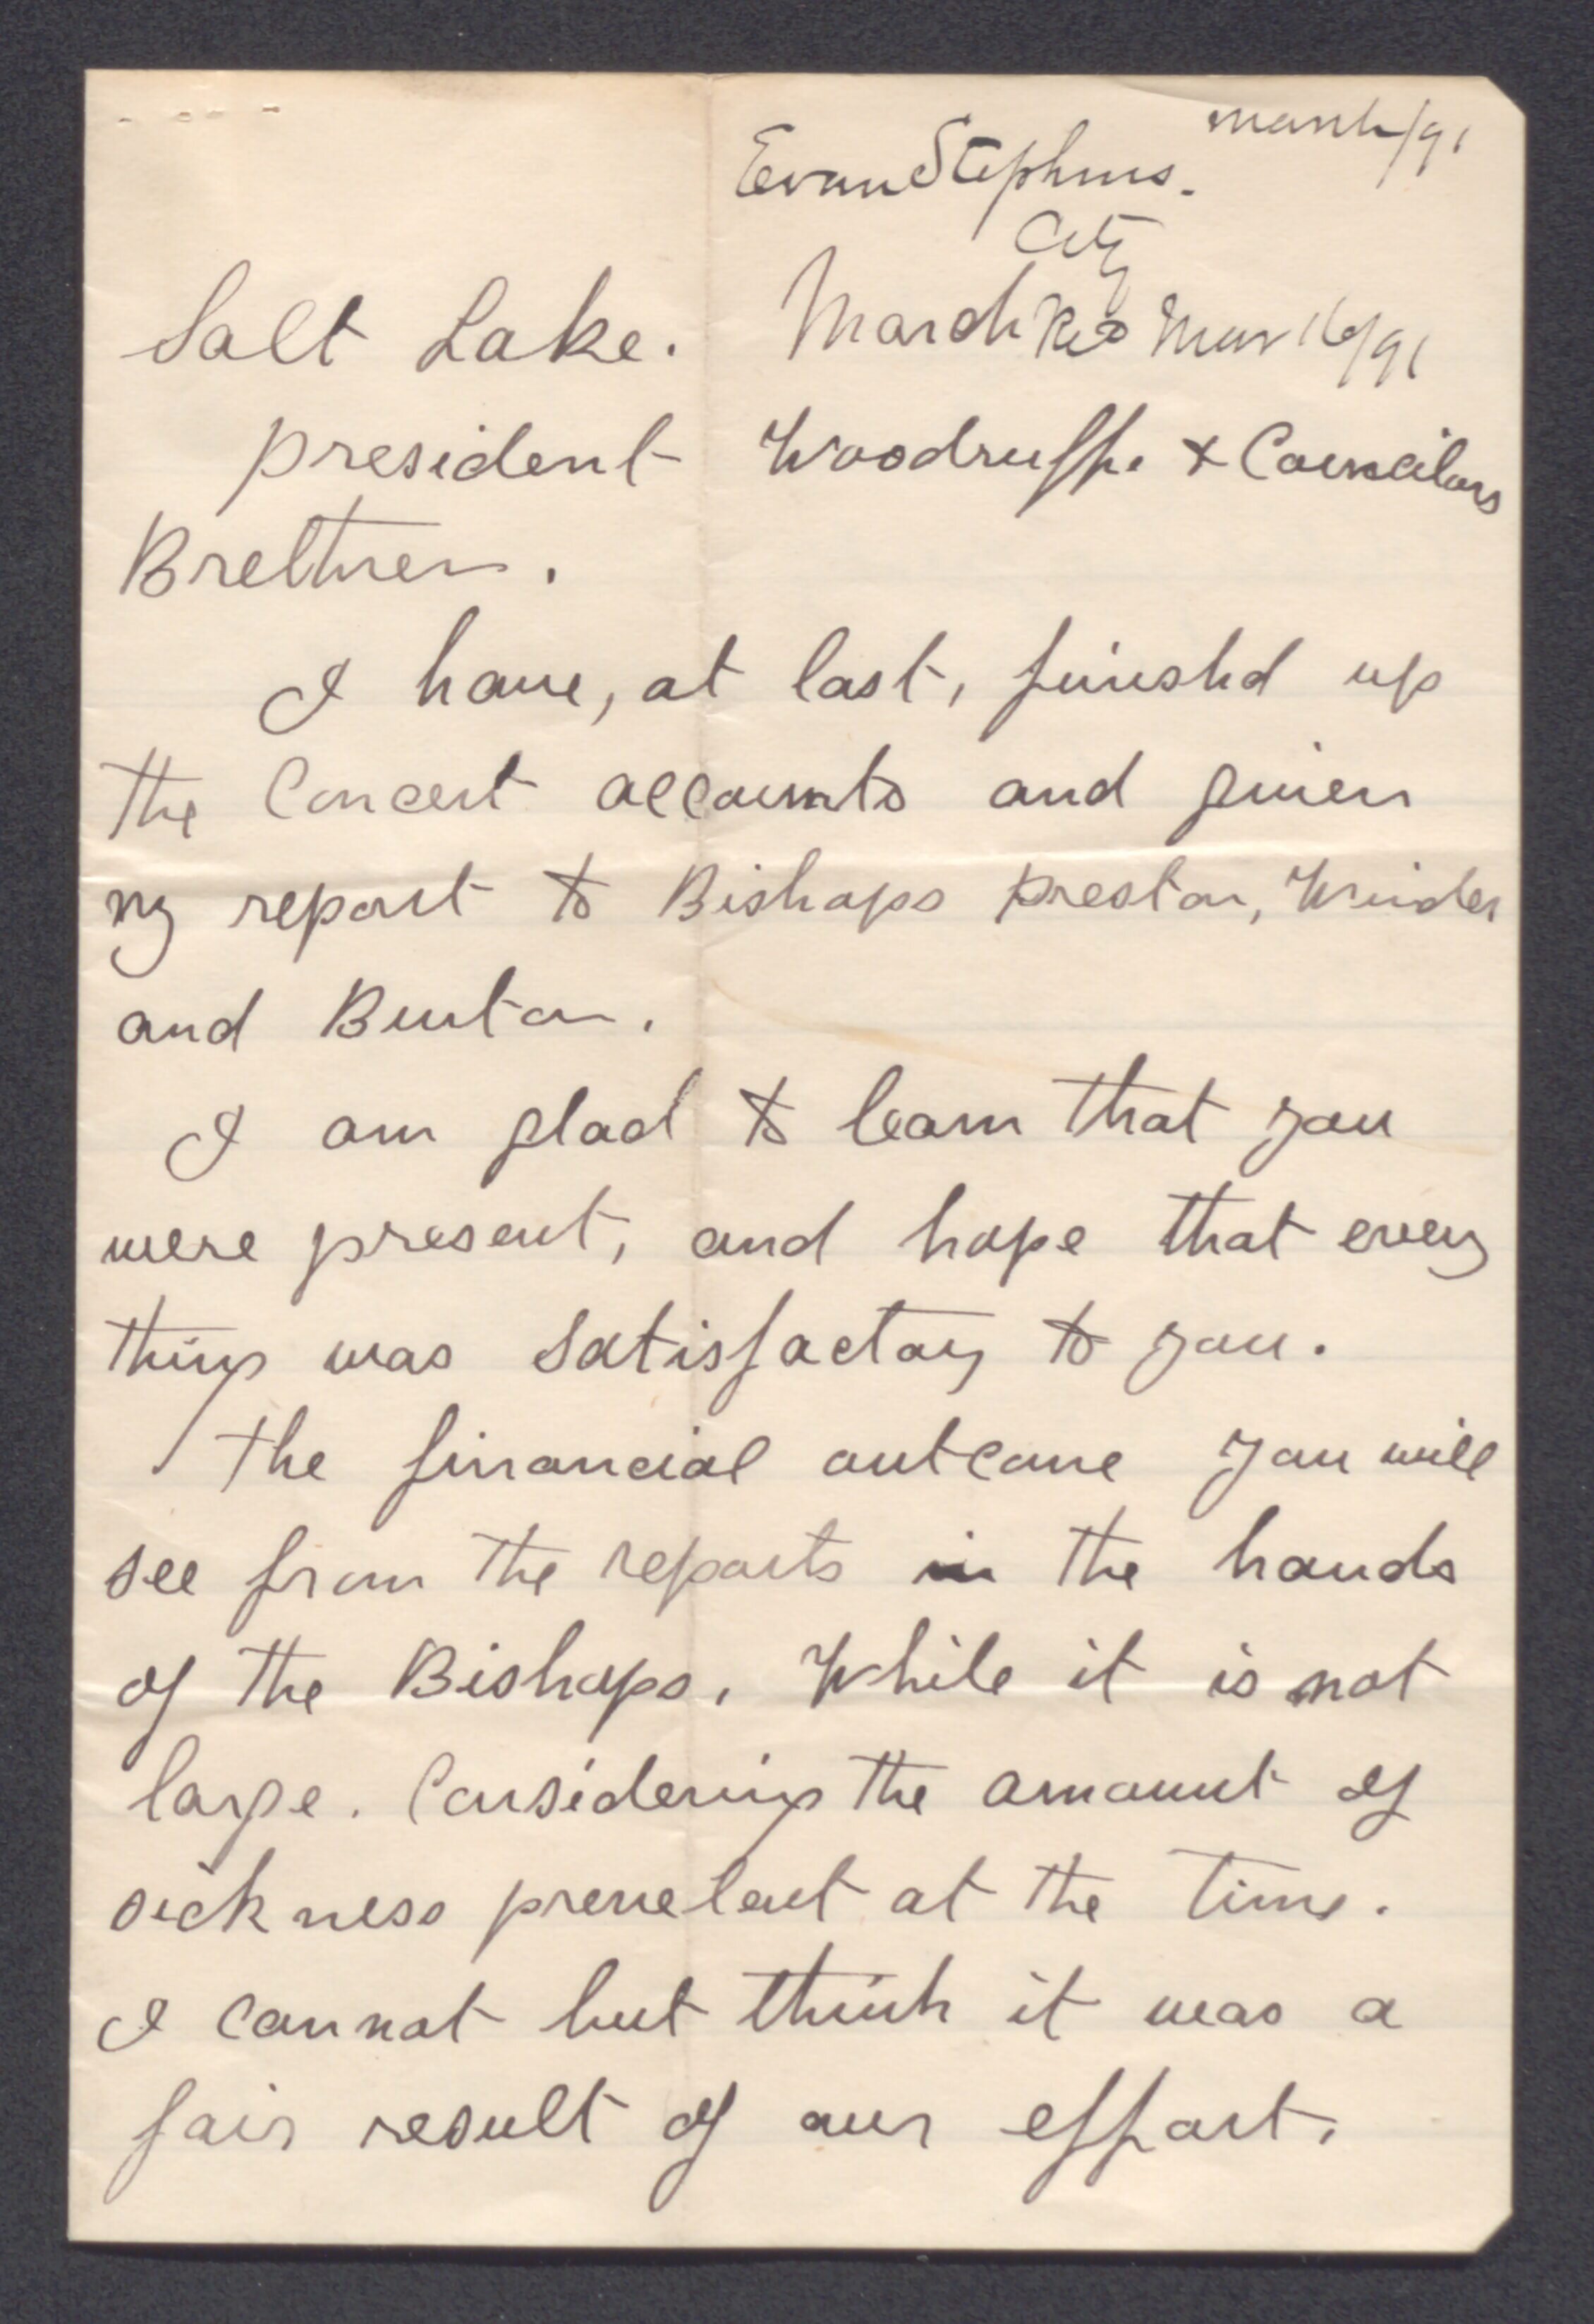 March/91
Evan Stephens.
City
Salt Lake. March Recd Mar 16/91
President Woodruff. & Councilors
Brethren.
I have, at last, finishd up
the Concert accounts and given
my report to Bishops Preston, Winder
and Burton.
I am glad to learn that you
were present, and hope that every
thing was satisfactory to you.
The financial outcome you will
see from the reports in the hands
of the Bishops. While it is not
large. Considering the amount of
sickness prevelent at the time.
I cannot but think it was a
fair result of our effort.